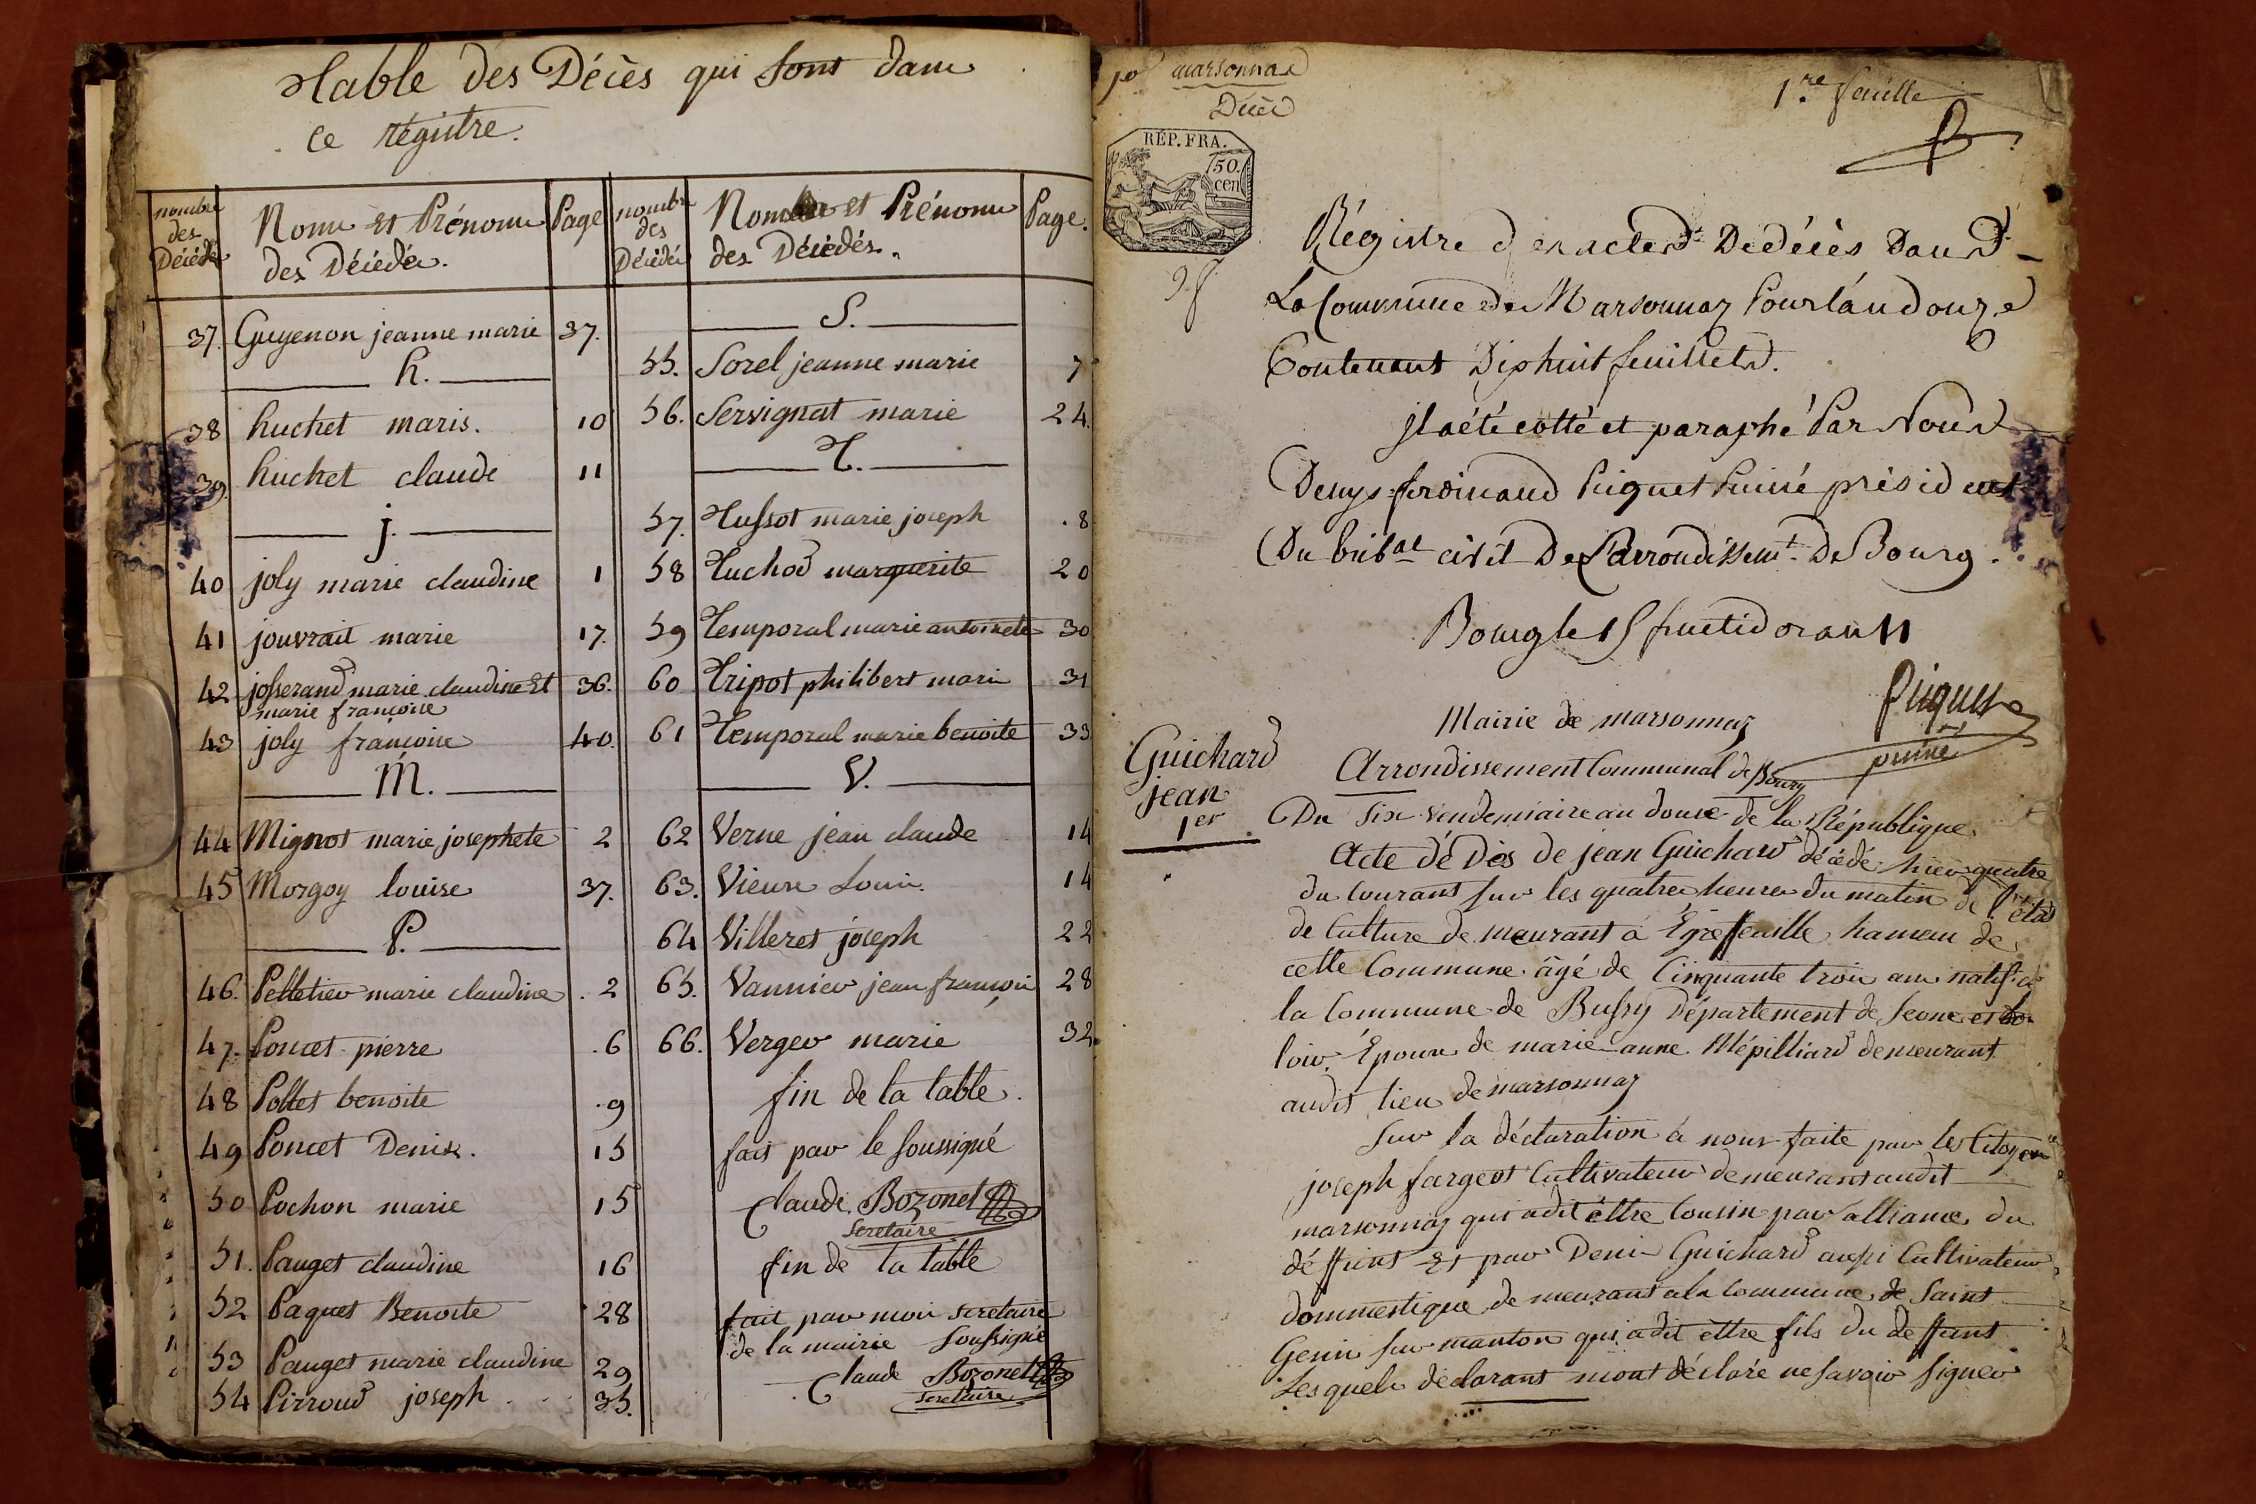 Table des Décès qui sont dans
ce régistre.
nombre des Décédés
Noms et Prénoms des Décédés.
Page
37. Guyenon jeanne marie 37.
h.
38 huchet maris. 10
39. huchet claude 11
j.
40 joly marie claudine 1
41 jouvrait marie 17.
42 josserand marie claudine et 36.
marie françoise
43 joly françoise 40.
M.
44 Mignot marie josephete 2
45 Morgoy louise 37.
P.
46. Pelletier marie claudine . 2
47. Poncet pierre . 6
48 Pollet benoite . 9
49 Poncet Denis. 15
50 Pochon marie 15
51. Pauget claudine 16
52 Paquet Benoite 28
53 Pauget marie claudine 29
54 Pirroud joseph 35.
nombre des Décédés
Noms et Prénoms des Décédés.
Page.
S.
55. Sorel jeanne marie 7
56. Servignat marie 24.
T.
57. Tussot marie joseph . 8
58 Tuchod marguerite 20
59 Temporal marie antoinete 30
60 Tripot philibert marie 31
61 Temporal marie benoite 33
V.
62 Verne jean claude 14
63. Vieux Louis. 14
64 Villeret joseph 22
65. Vannier jean françois 28
66. Verger marie 32
fin de la table.
fait par le soussigné
Claude Bozonet
Secretaire
fin de la table
fait par moi secretaire
de la mairie soussigné
Claude Bozonet
secretaire
marsonnas
Décès
1.re feuille
RÉP. FRA.
50.
cen
Régistre des actes De décès Dans
La Commune de Marsonnaz Pour l'an douze
Contenant Dix huit feuillets.
il a été cotté et paraphé Par Nous
Denys ferdinand Piquet Puiné président
Du tribal civil De l'arrondissemt. De Bourg.
Bourg le 15 fructidor an 11
Piquet
puiné
Mairie de marsonnaz
Arrondissement Communal de Bourg
Guichard
jean
1er
Du six vendemiaire an douze de la République
Acte de Dès de jean Guichard décédé hier quatre
du courant sur les quatre heures du matin de l'état
de Culture demeurant à Égreffeuille hameau de
cette Commune âgé de Cinquante trois ans natif de
la Commune de Bussy Département de Seone et
loir. Époux de marie anne Mépilliard demeurant
audit lieu de marsonnaz
Sur la déclaration à nous faite par les Citoyens
joseph fargeot Cultivateur demeurant audit
marsonnaz qui a dit être Cousin par alliance du
déffunt Et par Denis Guichard aussi Cultivateur
dommestique demeurant a la commune de Saint
Genin sur manton qui a dit être fils du deffunt
Lesquels déclarant mont déclaré ne savoir signer